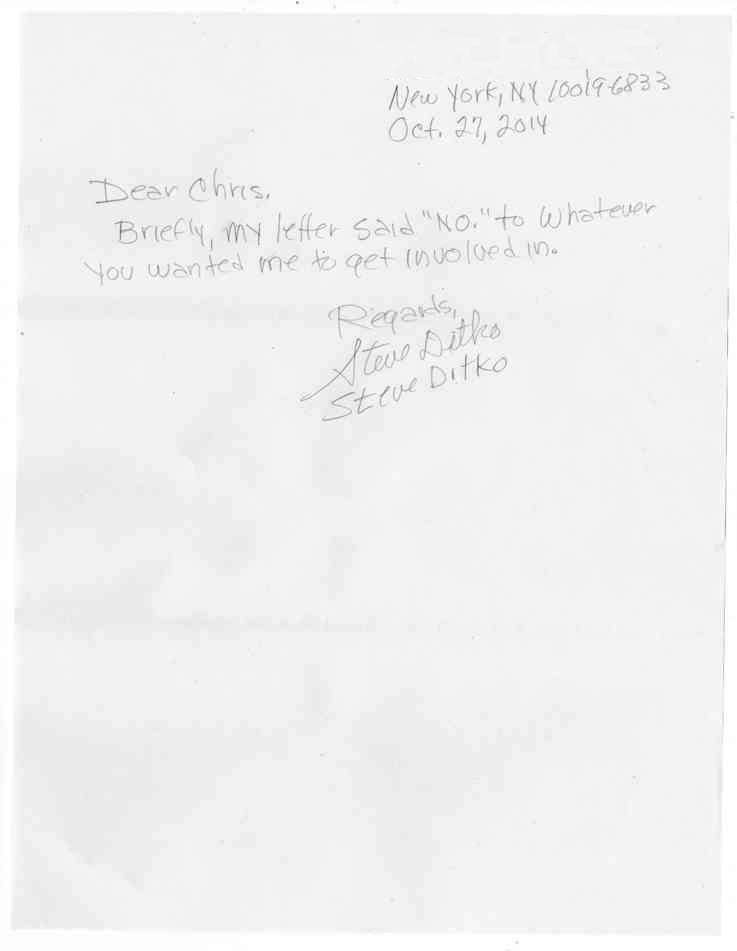 New York, NY 10019-6833
Oct. 27, 2014
Dear Chris.
Briefly, my letter said "No." to whatever
you wanted me to get involved in.
Regards,
Steve Ditko
Steve Ditko